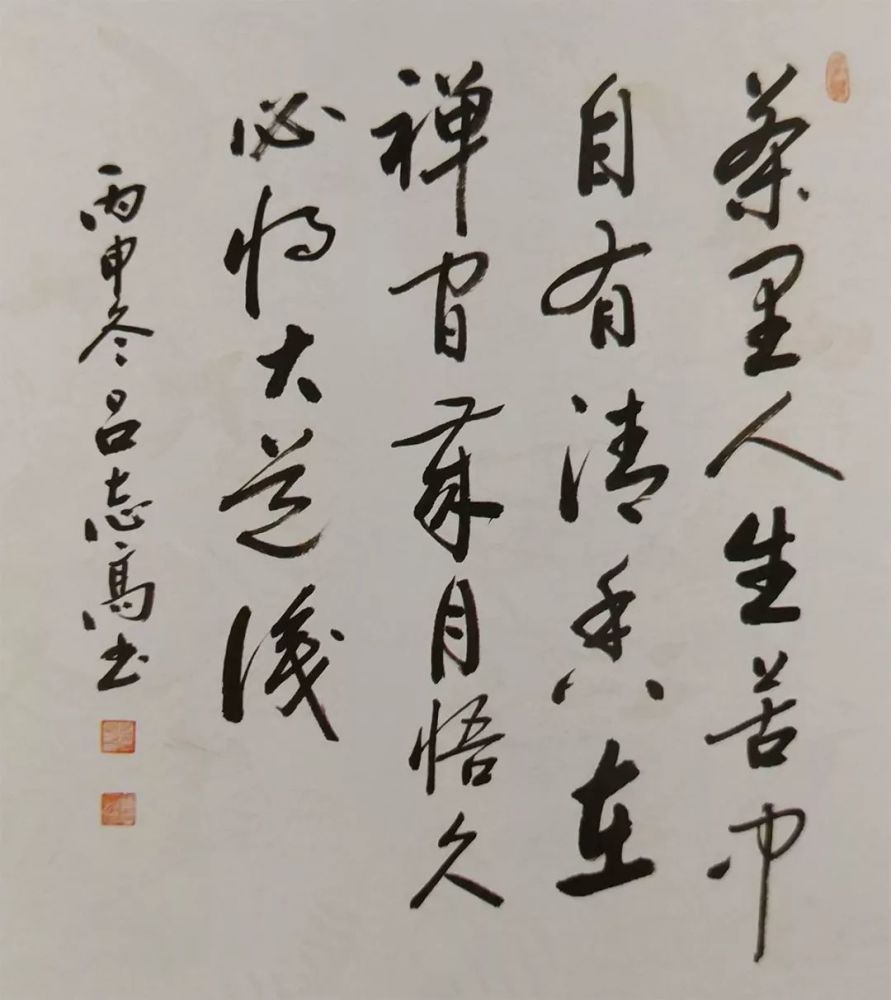 茶里人生苦中
自有清香在
禅間歲月悟久
必得大道
丙申冬吕志高书